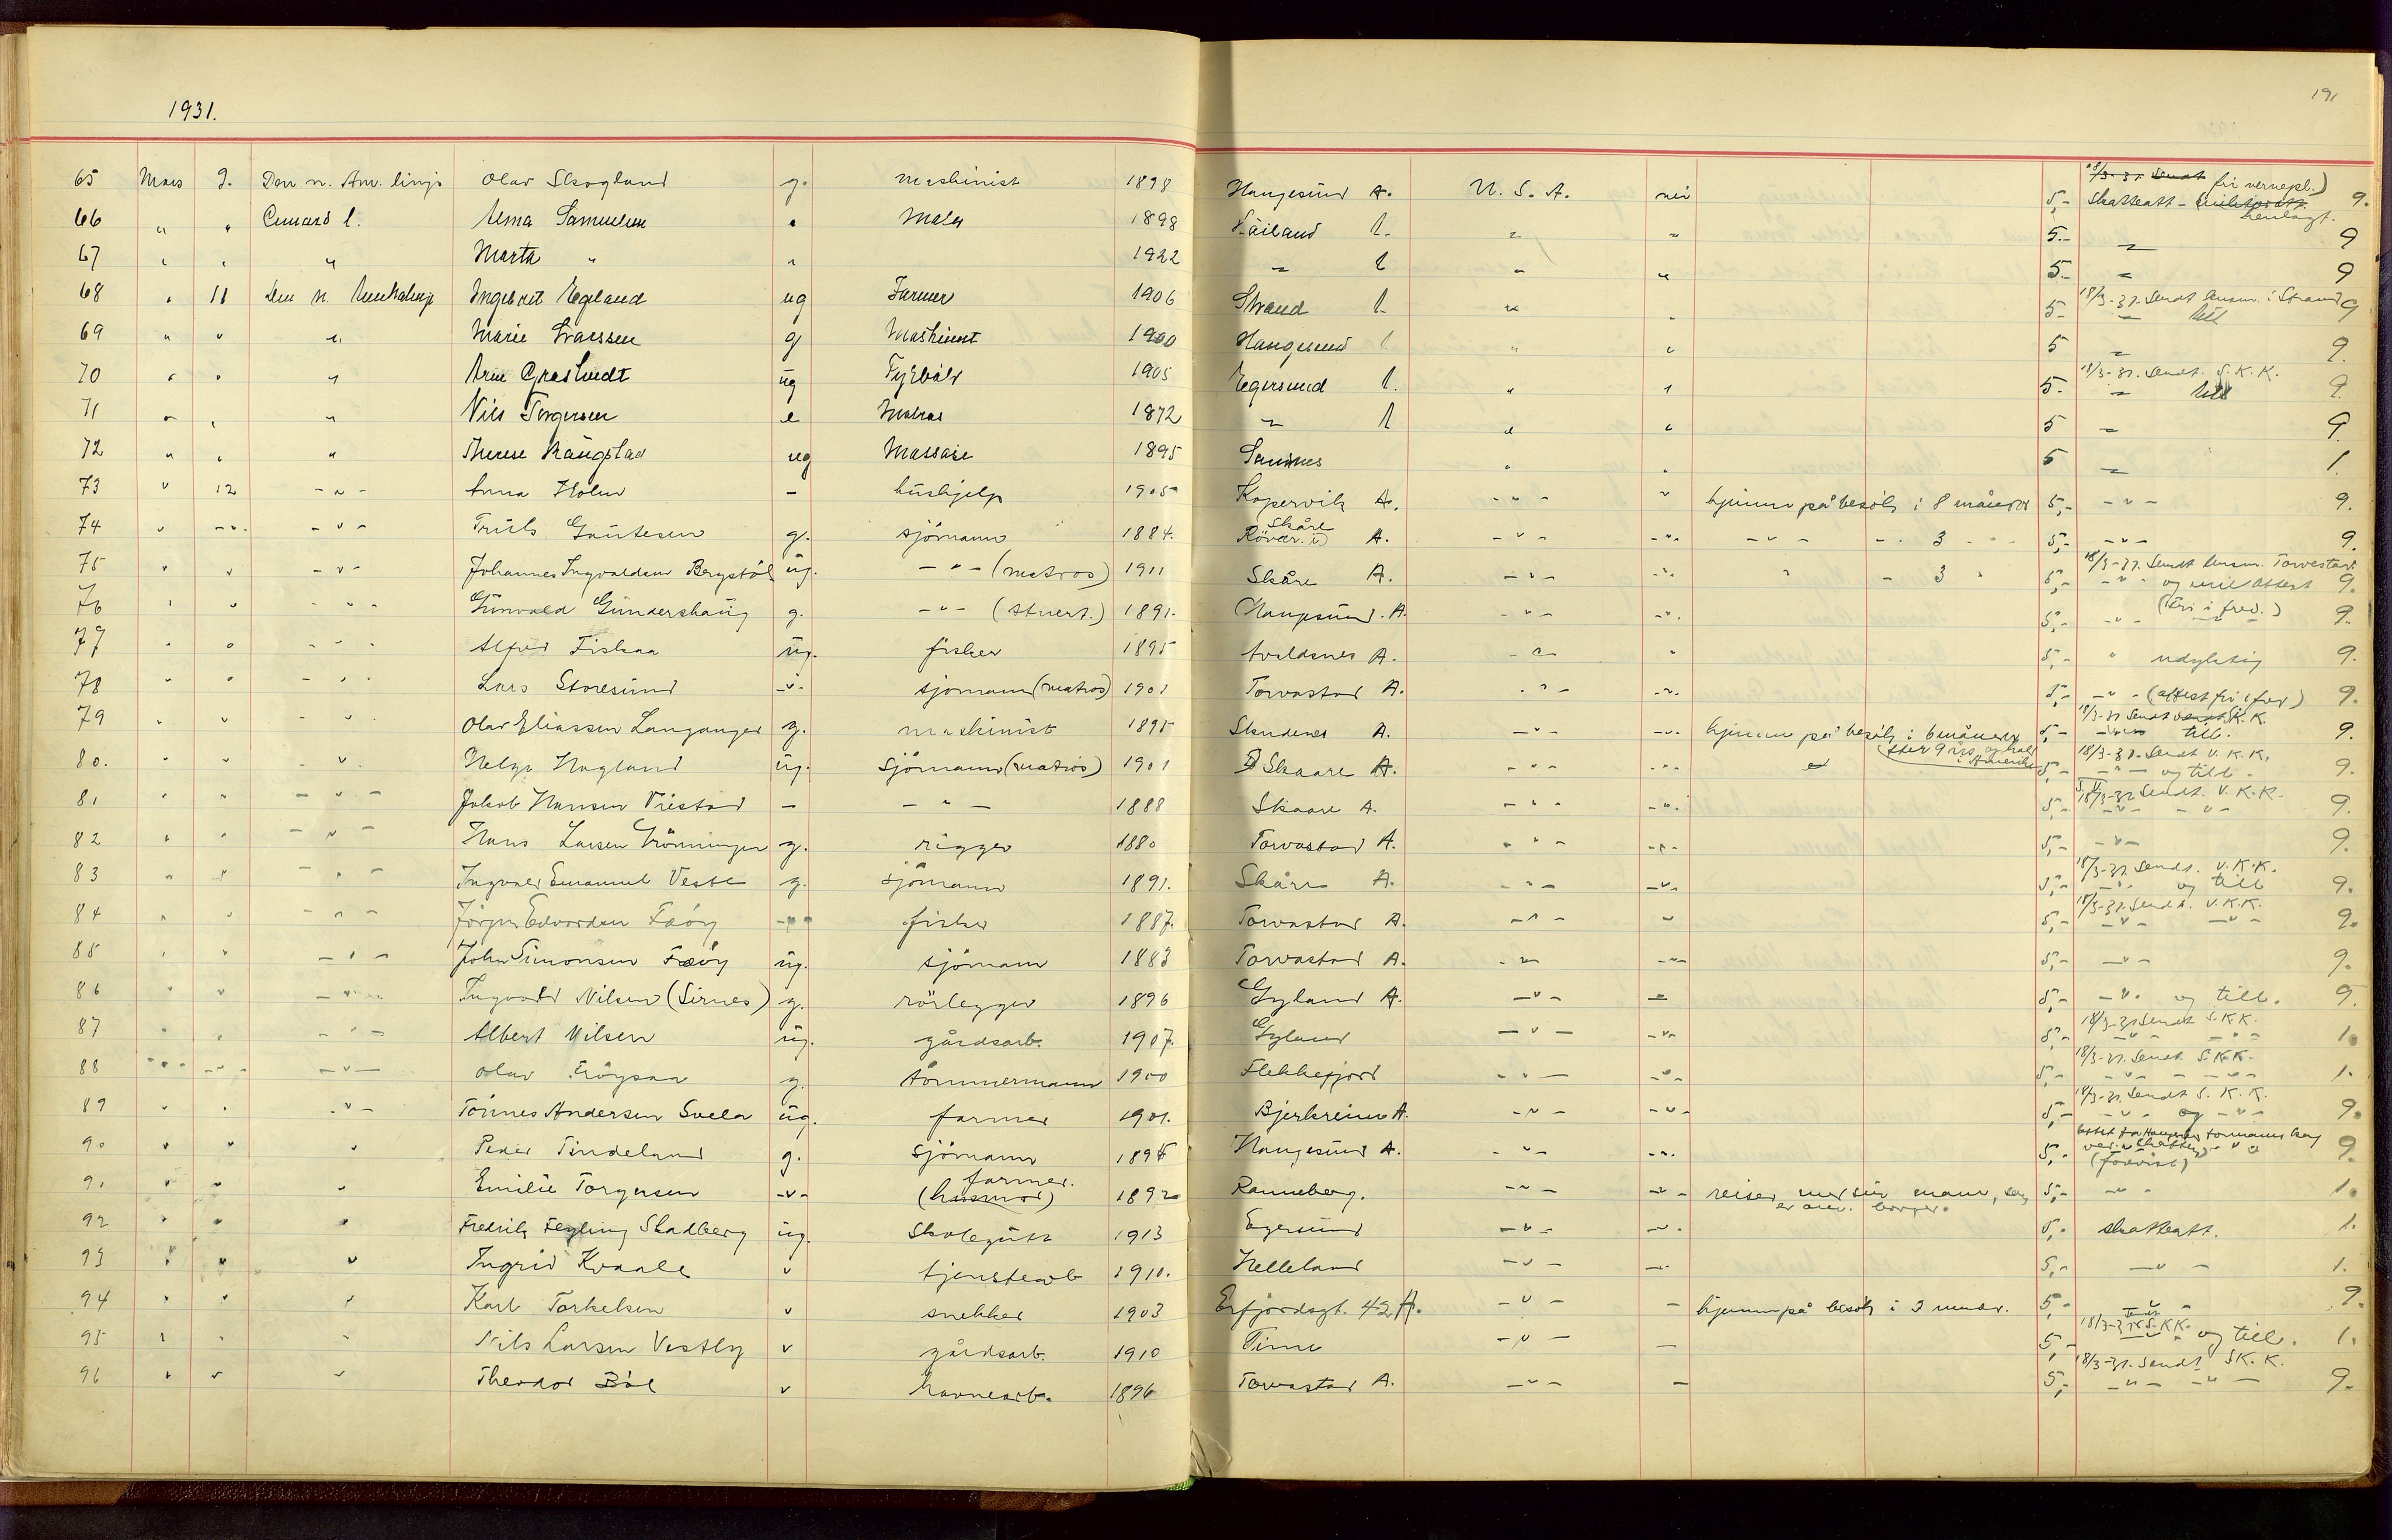 1931.
191
65 Mars 9. Den n. Am. linje Olav Skogland g. maskinist 1898 Haugesund A. U. S. A. nei 5,- Skatteatt - fri vernepl.) henlagt. 9.
66 " " Cunard l. Alma Samuelsen " 1898 A. " " 5.- " 9
67 " " " Marta " " 1922 " A " " 5.- " 9
68 " 11 Den n. Amerikalinje Ingebret Egeland ug Farmer 1906 Strand A " " 5- 18/3-31. Sendt lensm. i Strand " till 9
69 " " " Marie g Maskinist 1900 Haugesund A " " 5 " 9.
70 " " " Arne ug Fyrbøter 1905 Egersund A. " " 5.- 18/3-31. Sendt. S. K. K. " till 9.
71 " " " Nils Torgersen e Matros 1872 " A " " 5 " 9
72 " " " Therese ug Massøse 1895 Sandnes " " 5 " 1.
73 " 12 - " - Anna Holm - hushjelp 1905 Kopervik A. - " - " hjemme på besøk i 8 måneder 5,- - " - 9.
74 " - " - - " - Truls Gautesen g. sjömann 1884. Skåre Rövær. i) A. - " - - " - - " - - " 3 - " - 5,- - " - 9.
75 " " - " - Johannes Ingvaldsen Bergstöl üg. - " - (matros) 1911 Skåre A. - " - - " - " - 3 " 5,- 18/3-31. Sendt lensm. Torvestad. - " - og mil attest 9.
76 " " - " - Gunvald Gundershaug g. - " - (stuert.) 1891. Haugesund. A. - " - - " - 5,- - " - (Fri i fred.) 9.
77 " " - " - Alfred Fiskaa üg. fisker 1895 Avaldsnes A. - " - " 5,- " udyktig 9.
78 " " - " - Lars Storesund - " - sjömann (matros) 1901 Torvastad A. - " - - " - 5,- - " - (attest fri i fred) 9.
79 " " - " - Olav Eliassen Langanger g. maskinist 1895 Skudenes A. - " - - " - hjemme på besök i 6 måneder efter 9 års ophold i Amerika 5,- 18/3-31 Sendt S.K.K. - " - till. 9.
80. " " - " - Helge Hagland üg. Sjömann (matros) 1901 Skaare A. - " - - " - 5,- 18/3-31. Sendt V. K. K. - " - og till. 9.
81 " " - " - Jakob Hansen Vikstad - - " - 1888 Skaare A. - " - - " - 5,- 18/3-31 Sendt. V. K. K. - " - - " - 9.
82 " " - " - Hans Larsen Grönningen g. rigger 1880 Torvastad A. - " - - " - 5,- - " - 9.
83 " " - " - Ingvald Emanuel Veste g. sjömann 1891. Skåre A. - " - - " - 5,- 18/3-31 Sendt. V. K. K. - " - og till 9.
84 " " - " - Jörgen Edvardsen Faöy - " - fisker 1887. Torvastad A. - " - " 5,- 18/3-31. Sendt. V. K. K. - " - - " - 9.
85 " " - " - John Simonsen Faöy üg. sjömann 1883 Torvastad A. - " - - " - 5,- - " - 9.
86 " " - " - Ingvald Nilsen (Sirnes) g. rörlegger 1896 Gyland A. - " - - " - 5,- - " - og till. 9.
87 " " - " - Albert Nilsen üg. gårdsarb. 1907. Gyland - " - - " - 5,- 18/3-31 Sendt S.K.K. - " - - " - 1.
88 - " - - " - - " - Olav Fröysaa g. tömmermann 1900 Flekkefjord - " - - " - 5,- 18/3-31. Sendt S.K.K. - " - - " - 1.
89 " " - " - Tönnes Andersen Svela üg. farmer 1901. Bjerkreim A. - " - - " - 5,- 18/3-31. Sendt S. K. K. - " - og - " - 9.
90 " " " Peder Tindeland g. Sjömann 1895 Haugesund A. - " - - " - 5,- (forvist) 9.
91 " " " Emilie Torgersen - " - farmer. (husmor) 1892 Ranneberg. - " - - " - reiser med sin mann, som er am. borger. 5,- - " - 1.
92 " " " Fredrik Feyling Skadberg üg. Skolegutt 1913 Egersund - " - - " - 5,- skatteatt. 1.
93 " " " Ingrid Kvaale " tjenstearb 1910. Helleland - " - - " - 5,- - " - 1.
94 " " " Karl Torkelsen " snekker 1903 Erfjordsgt. 42 A. - " - - hjemme på besök i 3 mndr. 5,- - " - 9.
95 " " " Nils Larsen Vestly " gårdsarb. 1910 Time - " - - 5,- 18/3-31 Sendt S.K.K. - " - og till. 1.
96 " " " Theodor Böe " havnearb. 1896 Torvastad A. - " - - 5,- 18/3-31. Sendt S.K.K. - " - - " - 9.